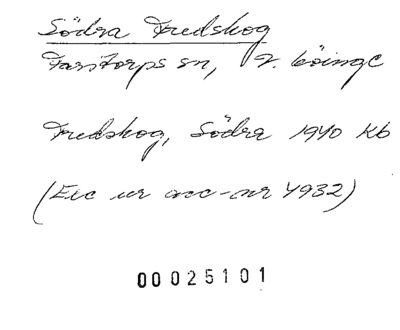 Södra Fredskog
Farstorps sn, V. Göinge
Fredskog, Södra 1940 Kb
(Exc ur acc-nr 4932)
00025101